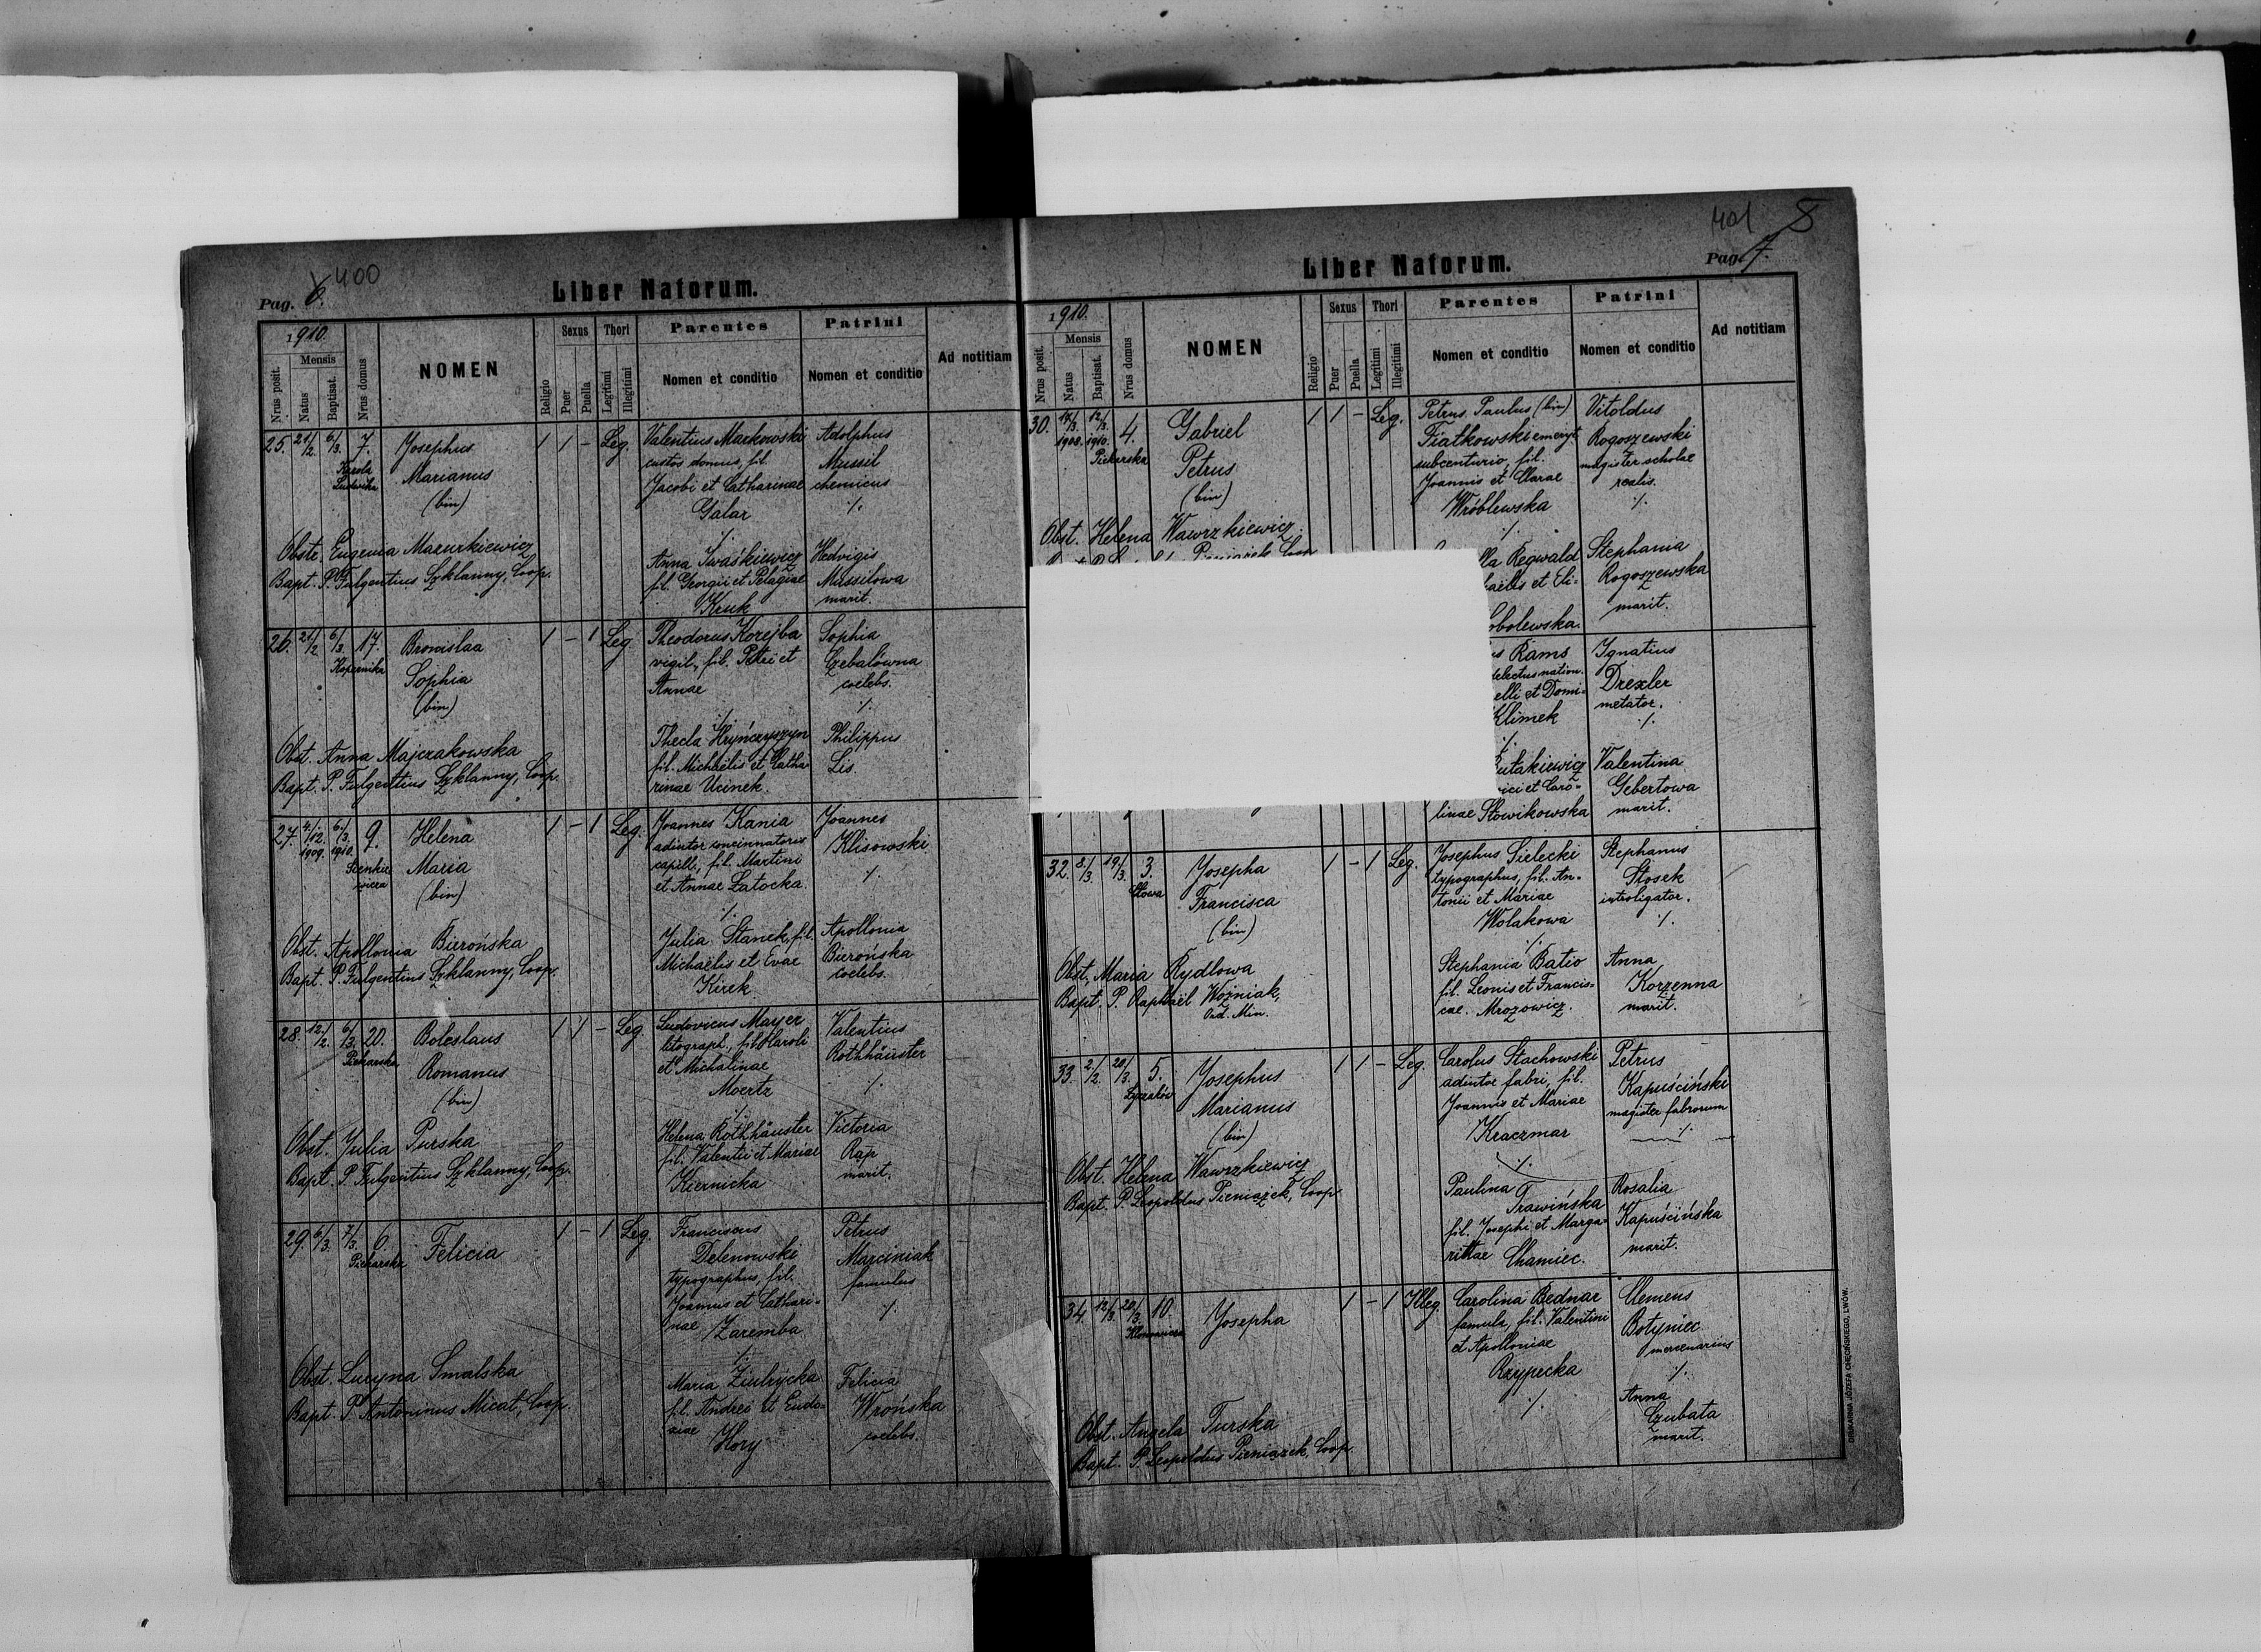 400
Pag. 6.
Liber Natorum.
1910.
Mensis
Nrus posit.
Natus
Baptisat.
Nrus domus
NOMEN
Religio
Sexus
Puer
Puella
Thori
Legitimi
Illegitimi
Parentes
Nomen et conditio
Patrini
Nomen et conditio
Ad notitiam
25. 21/2. 6/3. 7. Josephus 1 1 - Leg. Valentius Markowski Adolphus
Karola Ludwika Marianus custos domus, fil. Mussil
(bin) Jacobi et Catharinae chemicus
Galar ./.
./.
Obste. Eugenia Mazurkiewicz Anna Iwaśkiewicz Hedvigis
Bapt. P. Fulgentius Szklanny, Coop. fil. Georgii et Pelagiae Mussilowa
Kruk marit.
26. 21/2 6/3. 17. Bronislaa 1 - 1 Leg Theodorus Korejba Sophia
Kopernika Sophia vigil., fil. Petri et Czebalówna
(bin) Annae coelebs.
./. ./.
Obst. Anna Majczakowska Thecla Hryńczyszyn Philippus
Bapt. P. Fulgentius Szklanny, Coop. fil. Michaëlis et Catha- Lis.
rinae Ucinek.
27. 4/12. 1909. 6/3. 1910. 9. Helena 1 - 1 Leg. Joannes Kania Joannes
Maria adiutor concinnatoris Klisowski
(bin) capilli, fil. Martini ./.
et Annae Zatocka
./.
Obst. Apollonia Bierońska Julia Stanek, fil. Apollonia
Bapt. P. Fulgentius Szklanny, Coop. Michaëlis et Evae Bierońska
Kirek. coelebs.
28. 12/2. 6/3. 20. Boleslaus 1 1 - Leg. Ludovicus Mayer Valentius
Piekarska Romanus litograph., fil. Karoli Rothhäuster
(bin) et Michalinae ./.
Moertz
./.
Obst. Julia Purska Helena Rothhäuster Victoria
Bapt. P. Fulgentius Szklanny, Coop. fil. Valentii et Mariae Rap
Kiernicka marit.
29. 6/3. 7/3. 6. Felicia 1 - 1 Leg. Franciscus Petrus
Piekarska Delenowski Marciniak
typographus, fil. famulus
Joannis et Cathari- ./.
nae Zaremba
./.
Obst. Lucyna Smalska Maria Ziulrycka Felicia
Bapt. P. Antoninus Micat, Coop. fil. Andreä et Eudo- Wrońska
xiae Hory coelebs.
401 8
Pag. 7.
Liber Natorum.
1910.
Mensis
Nrus posit.
Natus
Baptisat.
Nrus domus
NOMEN
Religio
Sexus
Puer
Puella
Thori
Legitimi
Illegitimi
Parentes
Nomen et conditio
Patrini
Nomen et conditio
Ad notitiam
30. 18/3. 1908. 12/3. 1910. 4. Gabriel 1 1 - Leg. Petrus Paulus (bin) Vitoldus
Piekarska Petrus Fiatkowski emeryt. Rogoszewski
(bin) subcenturio, fil. magister scholae
Joannis et Clarae realis.
Wróblewska ./.
./.
Obst. Helena Wawrzkiewicz
lla Regwald Stephania
aëlis et Eli- Rogoszewska
obolewska. marit.
Rams Ignatius
delectus nation. Drexler
elli et Domi- metator.
Klimek ./.
./.
utakiewicz Valentina
vici et Caro- Gebertowa
linae Słowikowska marit.
32. 8/3. 19/3. 3. Josepha 1 - 1 Leg. Josephus Sielecki Stephanus
Francisca typographus, fil. An- Stosek
(bin) tonii et Mariae introligator.
Wolakowa ./.
./.
Obst. Maria Rydlowa Stephania Batio Anna
Bapt. P. Raphaël Woźniak, fil. Leonis et Francis- Korzenna
Ord. Min. cae Mrozowicz. marit.
33. 2/2. 20/3. 5. Josephus 1 1 - Leg. Carolus Stachowski Petrus
Łyczaków Marianus adiutor fabri, fil. Kapuściński
(bin) Joannis et Mariae magister fabrorum
Kraczmar ./.
./.
Obst. Helena Wawrzkiewicz Paulina Trawińska Rosalia
Bapt. P. Leopoldus Pieniążek, Coop. fil. Josephi et Marga- Kapuścińska
rittae Chamiec. marit.
34. 12/3. 20/3. 10. Josepha 1 - 1 Illeg. Carolina Bednar Clemens
famula, fil. Valentini Botyniec
et Apolloniae mercenarius
Rzypecka ./.
./. Anna
Obst. Angela Turska Czubata
Bapt. P. Leopoldus Pieniązek, Coop. marit.
DRUKARNIA JÓZEFA CHĘCIŃSKIEGO, LWÓW.